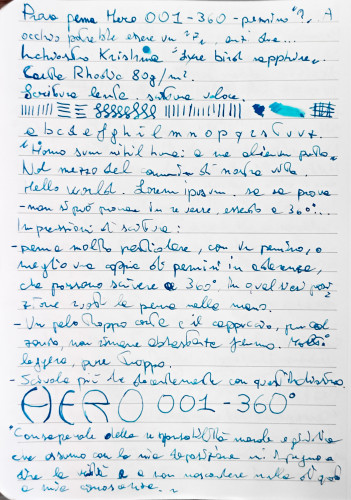 Prova penna Hero 001-360 - pennino "?, A
occhio potrebbe essere un "F", anzi direi...
Inchiostro Krishna "Lyre bird sapphire".
Carta Rhodia 80g/m².
Scrittura lenta. scrittura veloce.
a b c d e f g h i l m n o p q r s t u v z.
"Homo sum nihil humani a me alienum puto"
Nel mezzo del cammin di nostra vita.
Hello world. Lorem ipsum. sa sa prova
- non si può provare in reverse, essendo a 360°...
Impressioni di scrittura:
- penna molto particolare, con un pennino, o
meglio una coppia di pennini in aderenza,
che possono scrivere a 360° in qualsiasi posi
zione ruoto la penna nella mano.
- Un pelo troppo corta e il cappuccio, pur cal
zando, non rimane abbastanza fermo. Molto
leggera, pure troppo.
- Scivola più che decentemente con quest'inchiostro.
HERO 001-360°
"Consapevole della responsabilità morale e giuridica
che assumo con la mia deposizione mi impegno a
dire la verità e a non nascondere nulla di quanto
a mia conoscenza."